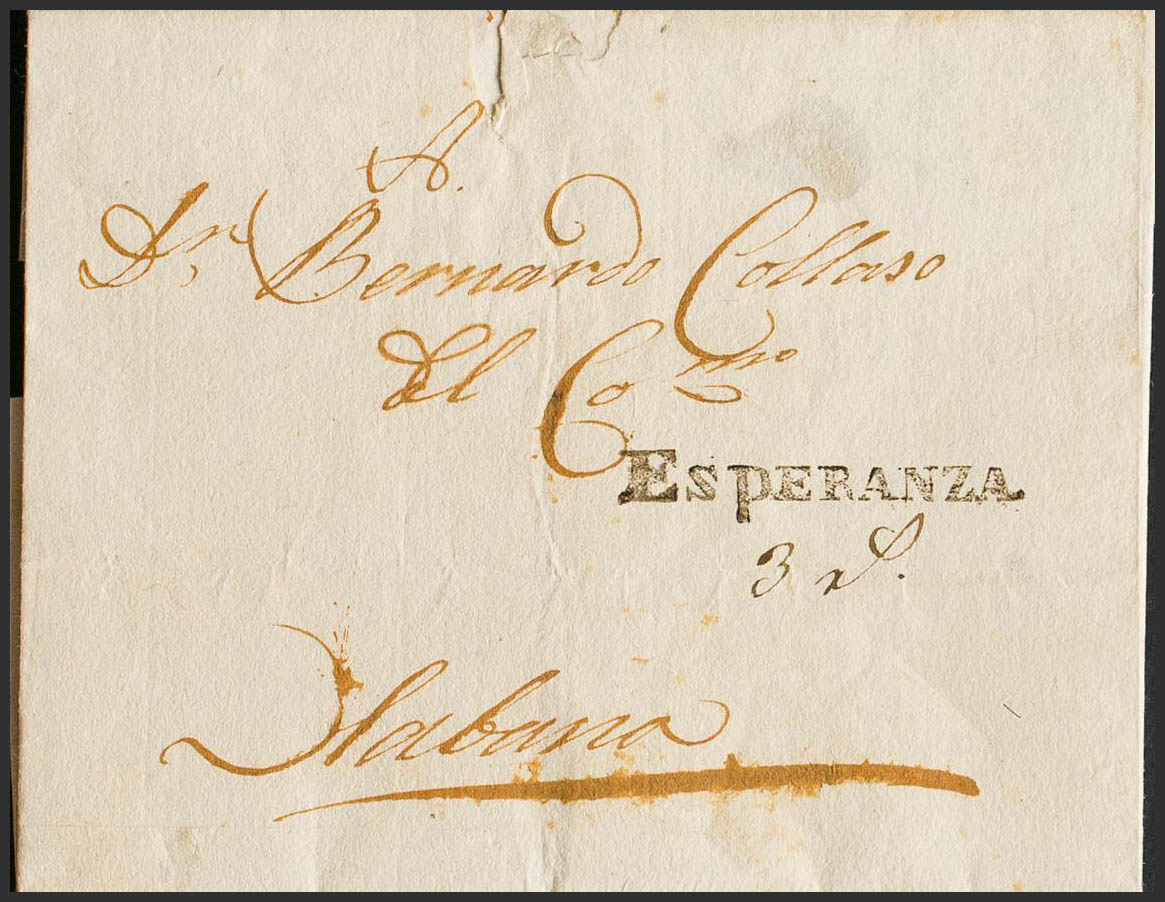 A.
Dn, Bernardo Collaso
del Como
ESPERANZA
3 rs.
Habana